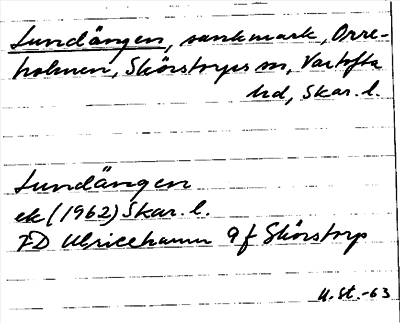 Lundängen, sankmark, Orre-
holmen, Skörstorps sn, Vartofta
hd, Skar. l.
Lundängen
ek (1962) Skar. l.
7D Ulricehamn 9f Skörstorp
U. St. -63